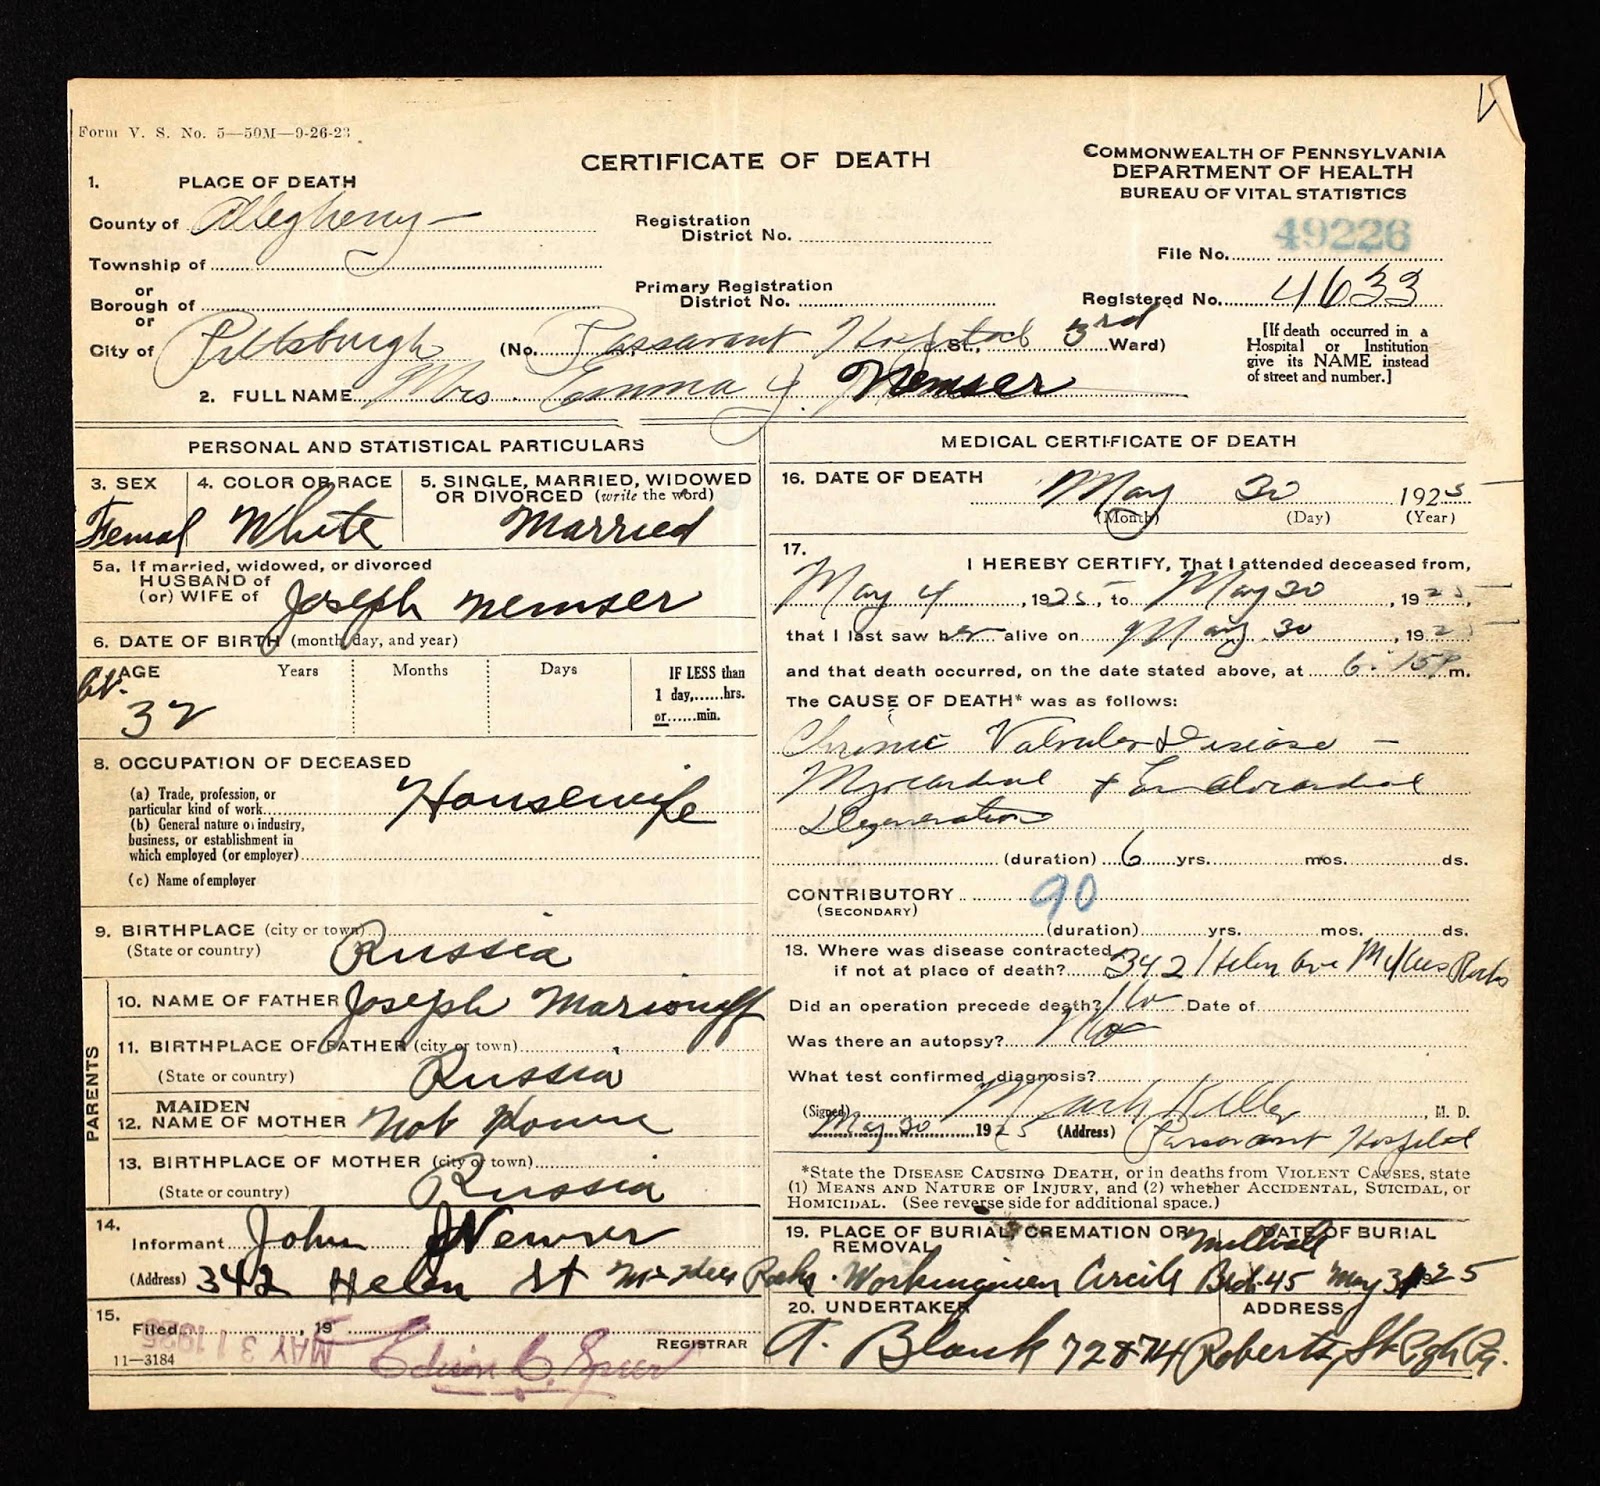 Form V. S. No. 5—50M—9-26-23
CERTIFICATE OF DEATH
COMMONWEALTH OF PENNSYLVANIA
DEPARTMENT OF HEALTH
BUREAU OF VITAL STATISTICS
1. PLACE OF DEATH
County of Allegheny
Township of
or
Borough of
or
City of Pittsburgh (No. Passavant Hospital St., 3rd Ward)
Registration
District No.
Primary Registration
District No.
File No. 49226
Registered No. 4633
[If death occurred in a
Hospital or Institution
give its NAME instead
of street and number.]
2. FULL NAME Mrs. Emma J. Nemser
PERSONAL AND STATISTICAL PARTICULARS
3. SEX 4. COLOR OR RACE 5. SINGLE, MARRIED, WIDOWED
OR DIVORCED (write the word)
Femal White Married
5a. If married, widowed, or divorced
HUSBAND of
(or) WIFE of Joseph Nemser
6. DATE OF BIRTH (month, day, and year)
AGE Years Months Days IF LESS than
1 day,......hrs.
or......min.
32
8. OCCUPATION OF DECEASED
(a) Trade, profession, or
particular kind of work Housewife
(b) General nature of industry,
business, or establishment in
which employed (or employer)
(c) Name of employer
9. BIRTHPLACE (city or town)
(State or country) Russia
PARENTS
10. NAME OF FATHER Joseph
11. BIRTHPLACE OF FATHER (city or town)
(State or country) Russia
12. MAIDEN
NAME OF MOTHER Not
13. BIRTHPLACE OF MOTHER (city or town)
(State or country) Russia
14.
Informant John
(Address) 342 Helen St McKees Rocks
15.
Filed MAY 31 1925, 19
REGISTRAR
11—3184
MEDICAL CERTIFICATE OF DEATH
16. DATE OF DEATH May 30 1925
(Month) (Day) (Year)
17. I HEREBY CERTIFY, That I attended deceased from,
May 4, 1925, to May 30, 1925,
that I last saw her alive on May 30, 1925
and that death occurred, on the date stated above, at 6:15 P m.
The CAUSE OF DEATH* was as follows:
Chronic Valvular Disease —
Myocardial + Endocardial
Degeneration
(duration) 6 yrs. mos. ds.
CONTRIBUTORY 90
(SECONDARY)
(duration) yrs. mos. ds.
18. Where was disease contracted
if not at place of death? 342 Helen Ave McKees Rocks
Did an operation precede death? No Date of
Was there an autopsy? No
What test confirmed diagnosis?
(Signed) , M. D.
May 30 1925 (Address) Passavant Hospital
*State the DISEASE CAUSING DEATH, or in deaths from VIOLENT CAUSES, state
(1) MEANS AND NATURE OF INJURY, and (2) whether ACCIDENTAL, SUICIDAL, or
HOMICIDAL. (See reverse side for additional space.)
19. PLACE OF BURIAL, CREMATION OR DATE OF BURIAL
REMOVAL Millvale
Workingmen Circle 45 May 31 1925
20. UNDERTAKER ADDRESS
A. Blank Roberts St Pgh Pa.